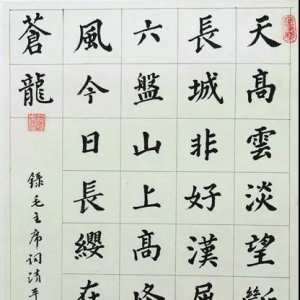 天高雲淡望斷
長城非好漢屈
六盤山上高峰
風今日長纓在
蒼龍
錄毛主席詞清平